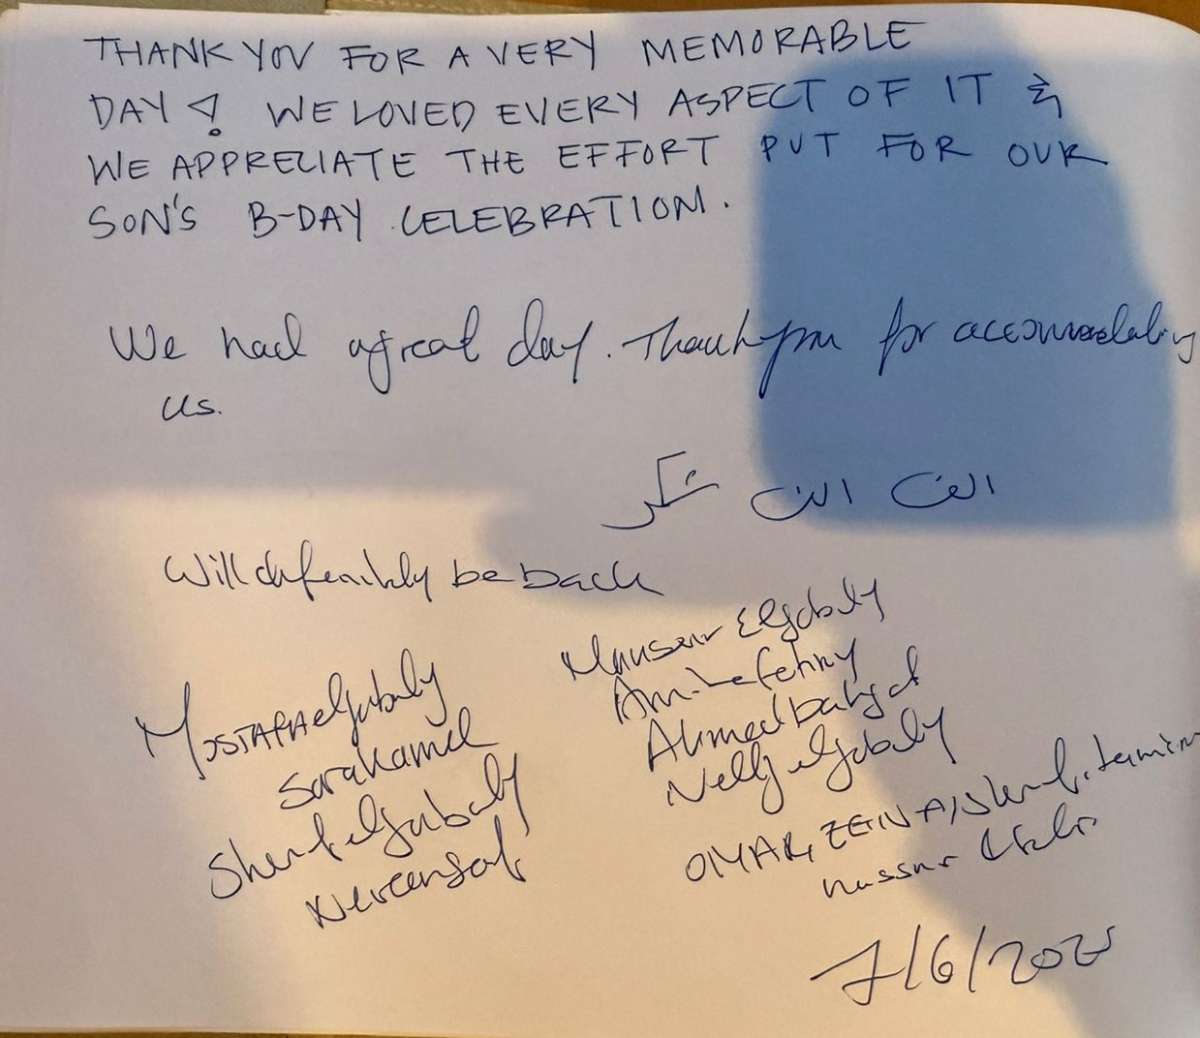 THANK YOU FOR A VERY MEMORABLE
DAY! WE LOVED EVERY ASPECT OF IT &
WE APPRECIATE THE EFFORT PUT FOR OUR
SON'S B-DAY CELEBRATION.
We had a great day. Thank you for accommodating
us.
الف الف شكر
Will definitely be back
Mostafa elgabaly
Sara Kamel
Sherif elgabaly
Nereen
Mansour Elgabaly
Amina fahmy
Ahmed bahgat
Nelly elgabaly
OMAR, ZEINA, Sherif, tamim
nassar
7/6/202